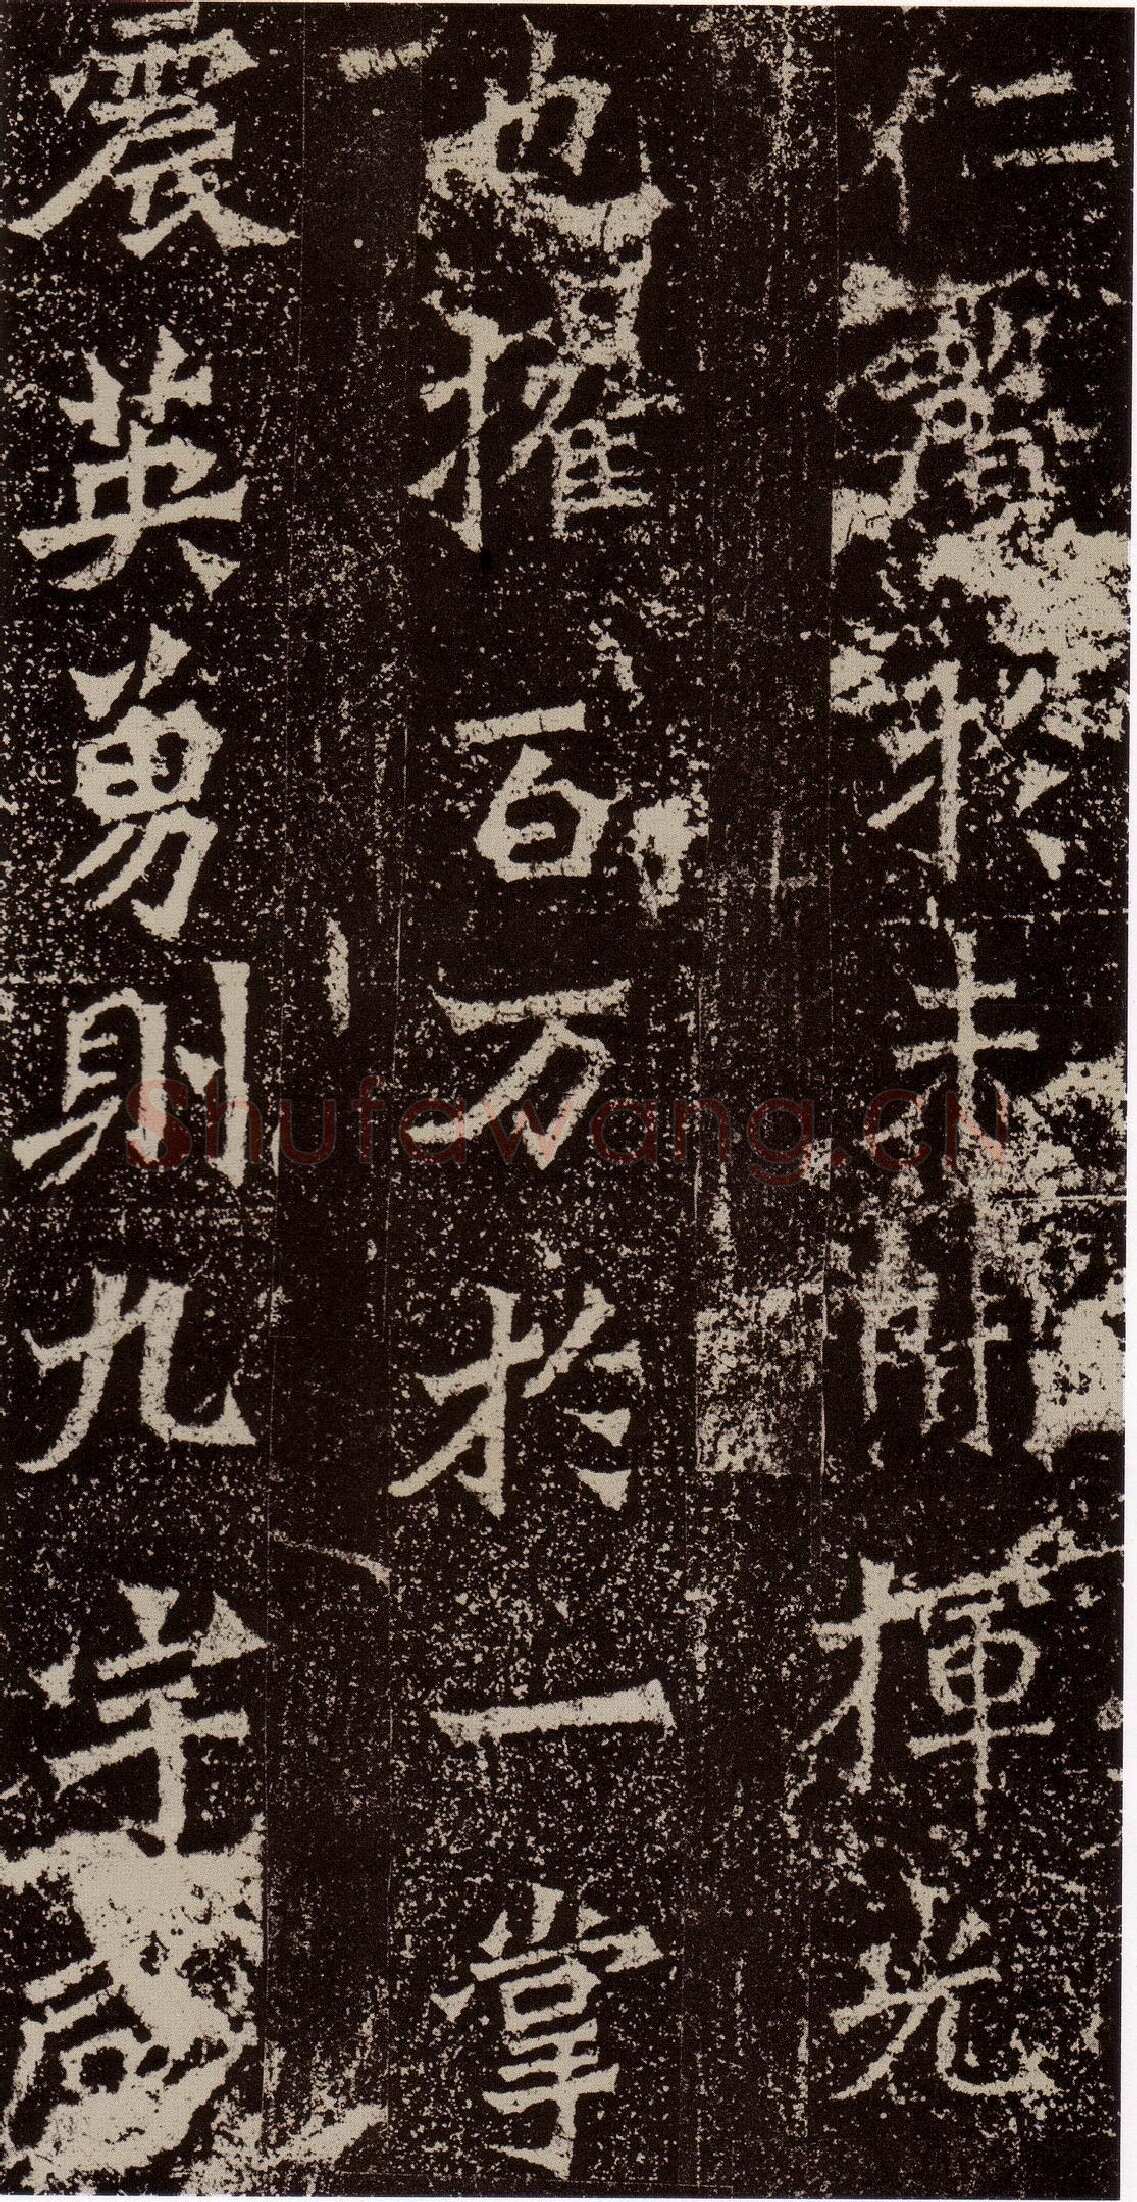 仁聲於未聞揮光
也摧百万於一掌
震英勇則九宇咸
Shufawang.CN